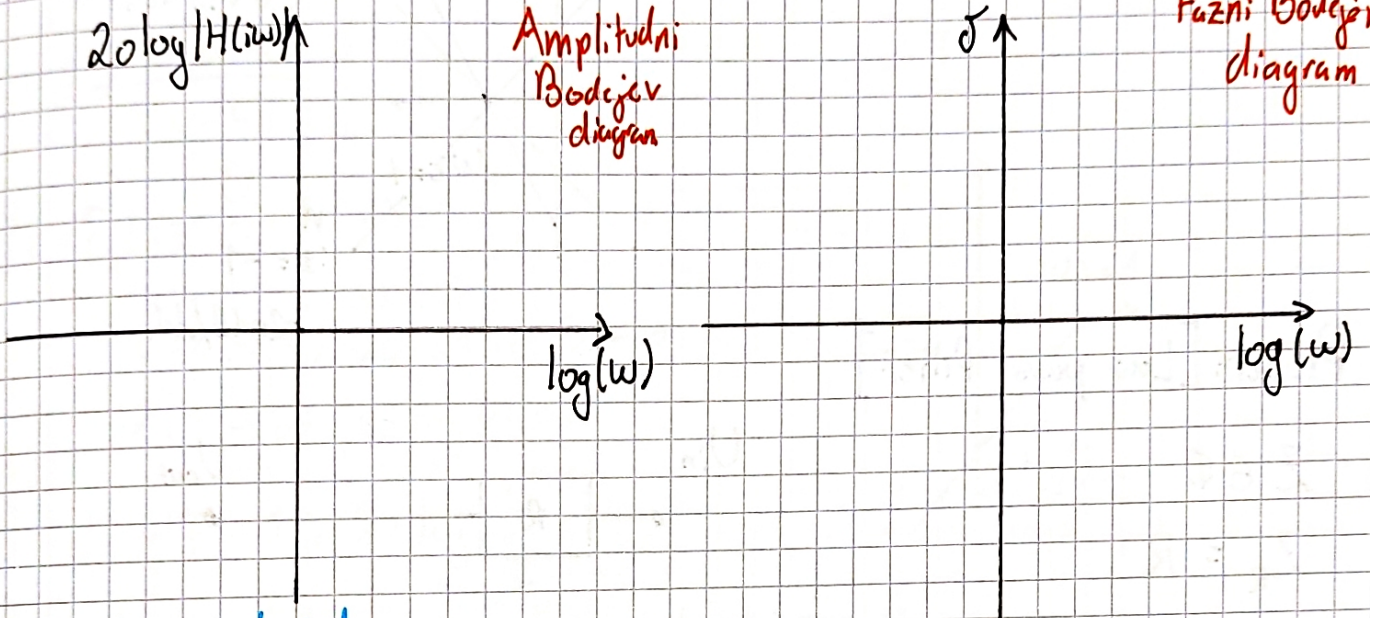 20log|H(iω)|
Amplitudni
Bodejev
diagram
log(ω)
δ
Fazni Bodejev
diagram
log(ω)